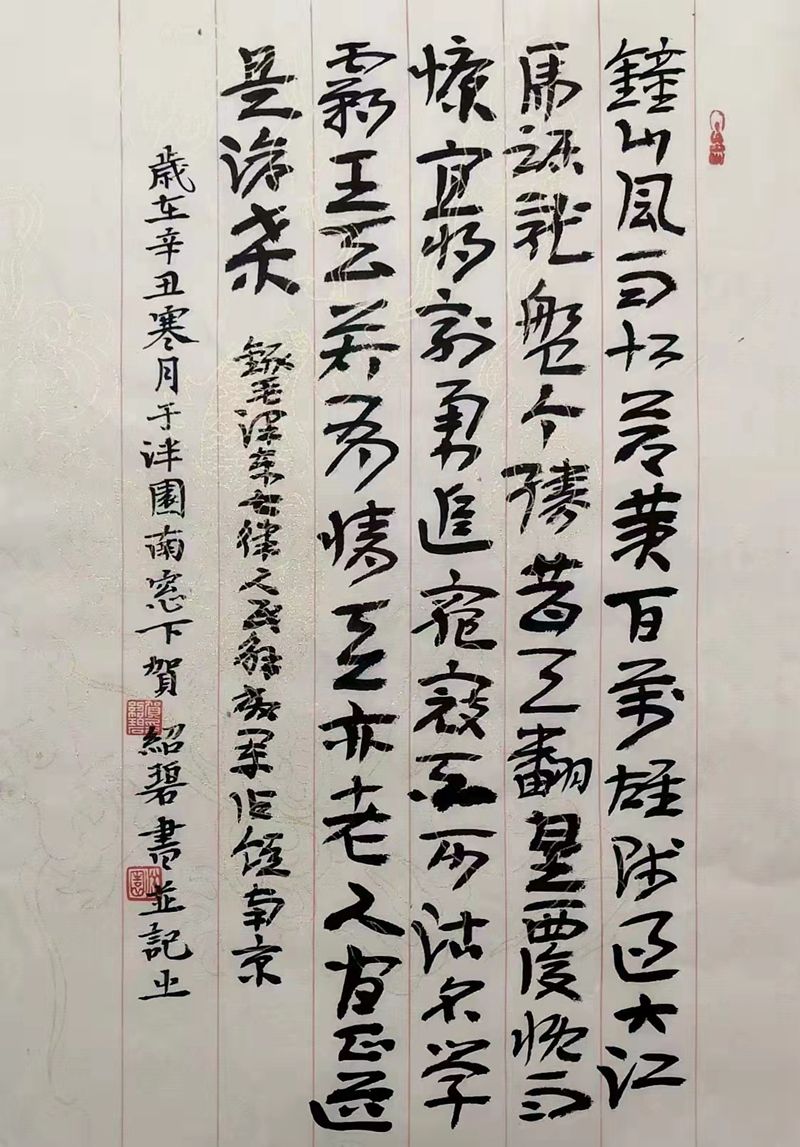 鐘山風雨起苍黄百萬雄师过大江
虎踞龍盤今勝昔天翻地覆慨而
慷宜将剩勇追窮寇不可沽名学
霸王天若有情天亦老人间正道
是滄桑 錄毛澤东七律人民解放军占領南京
歲在辛丑寒月于泮園南窓下賀紹碧書並記之